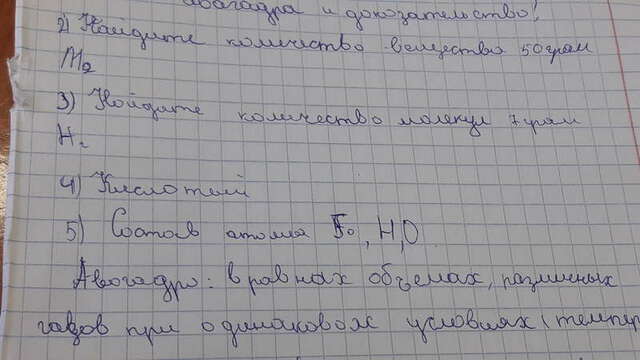 Авогадра и доказательство!
2) Найдите количество вещества 50 грам
Mg
3) Найдите количество молекул 7 грам
H₂
4) Кислоты
5) Состав атома Fe, H, O
Авогадро: в равных объемах, различных
газов при одинаковом условиях (темпер